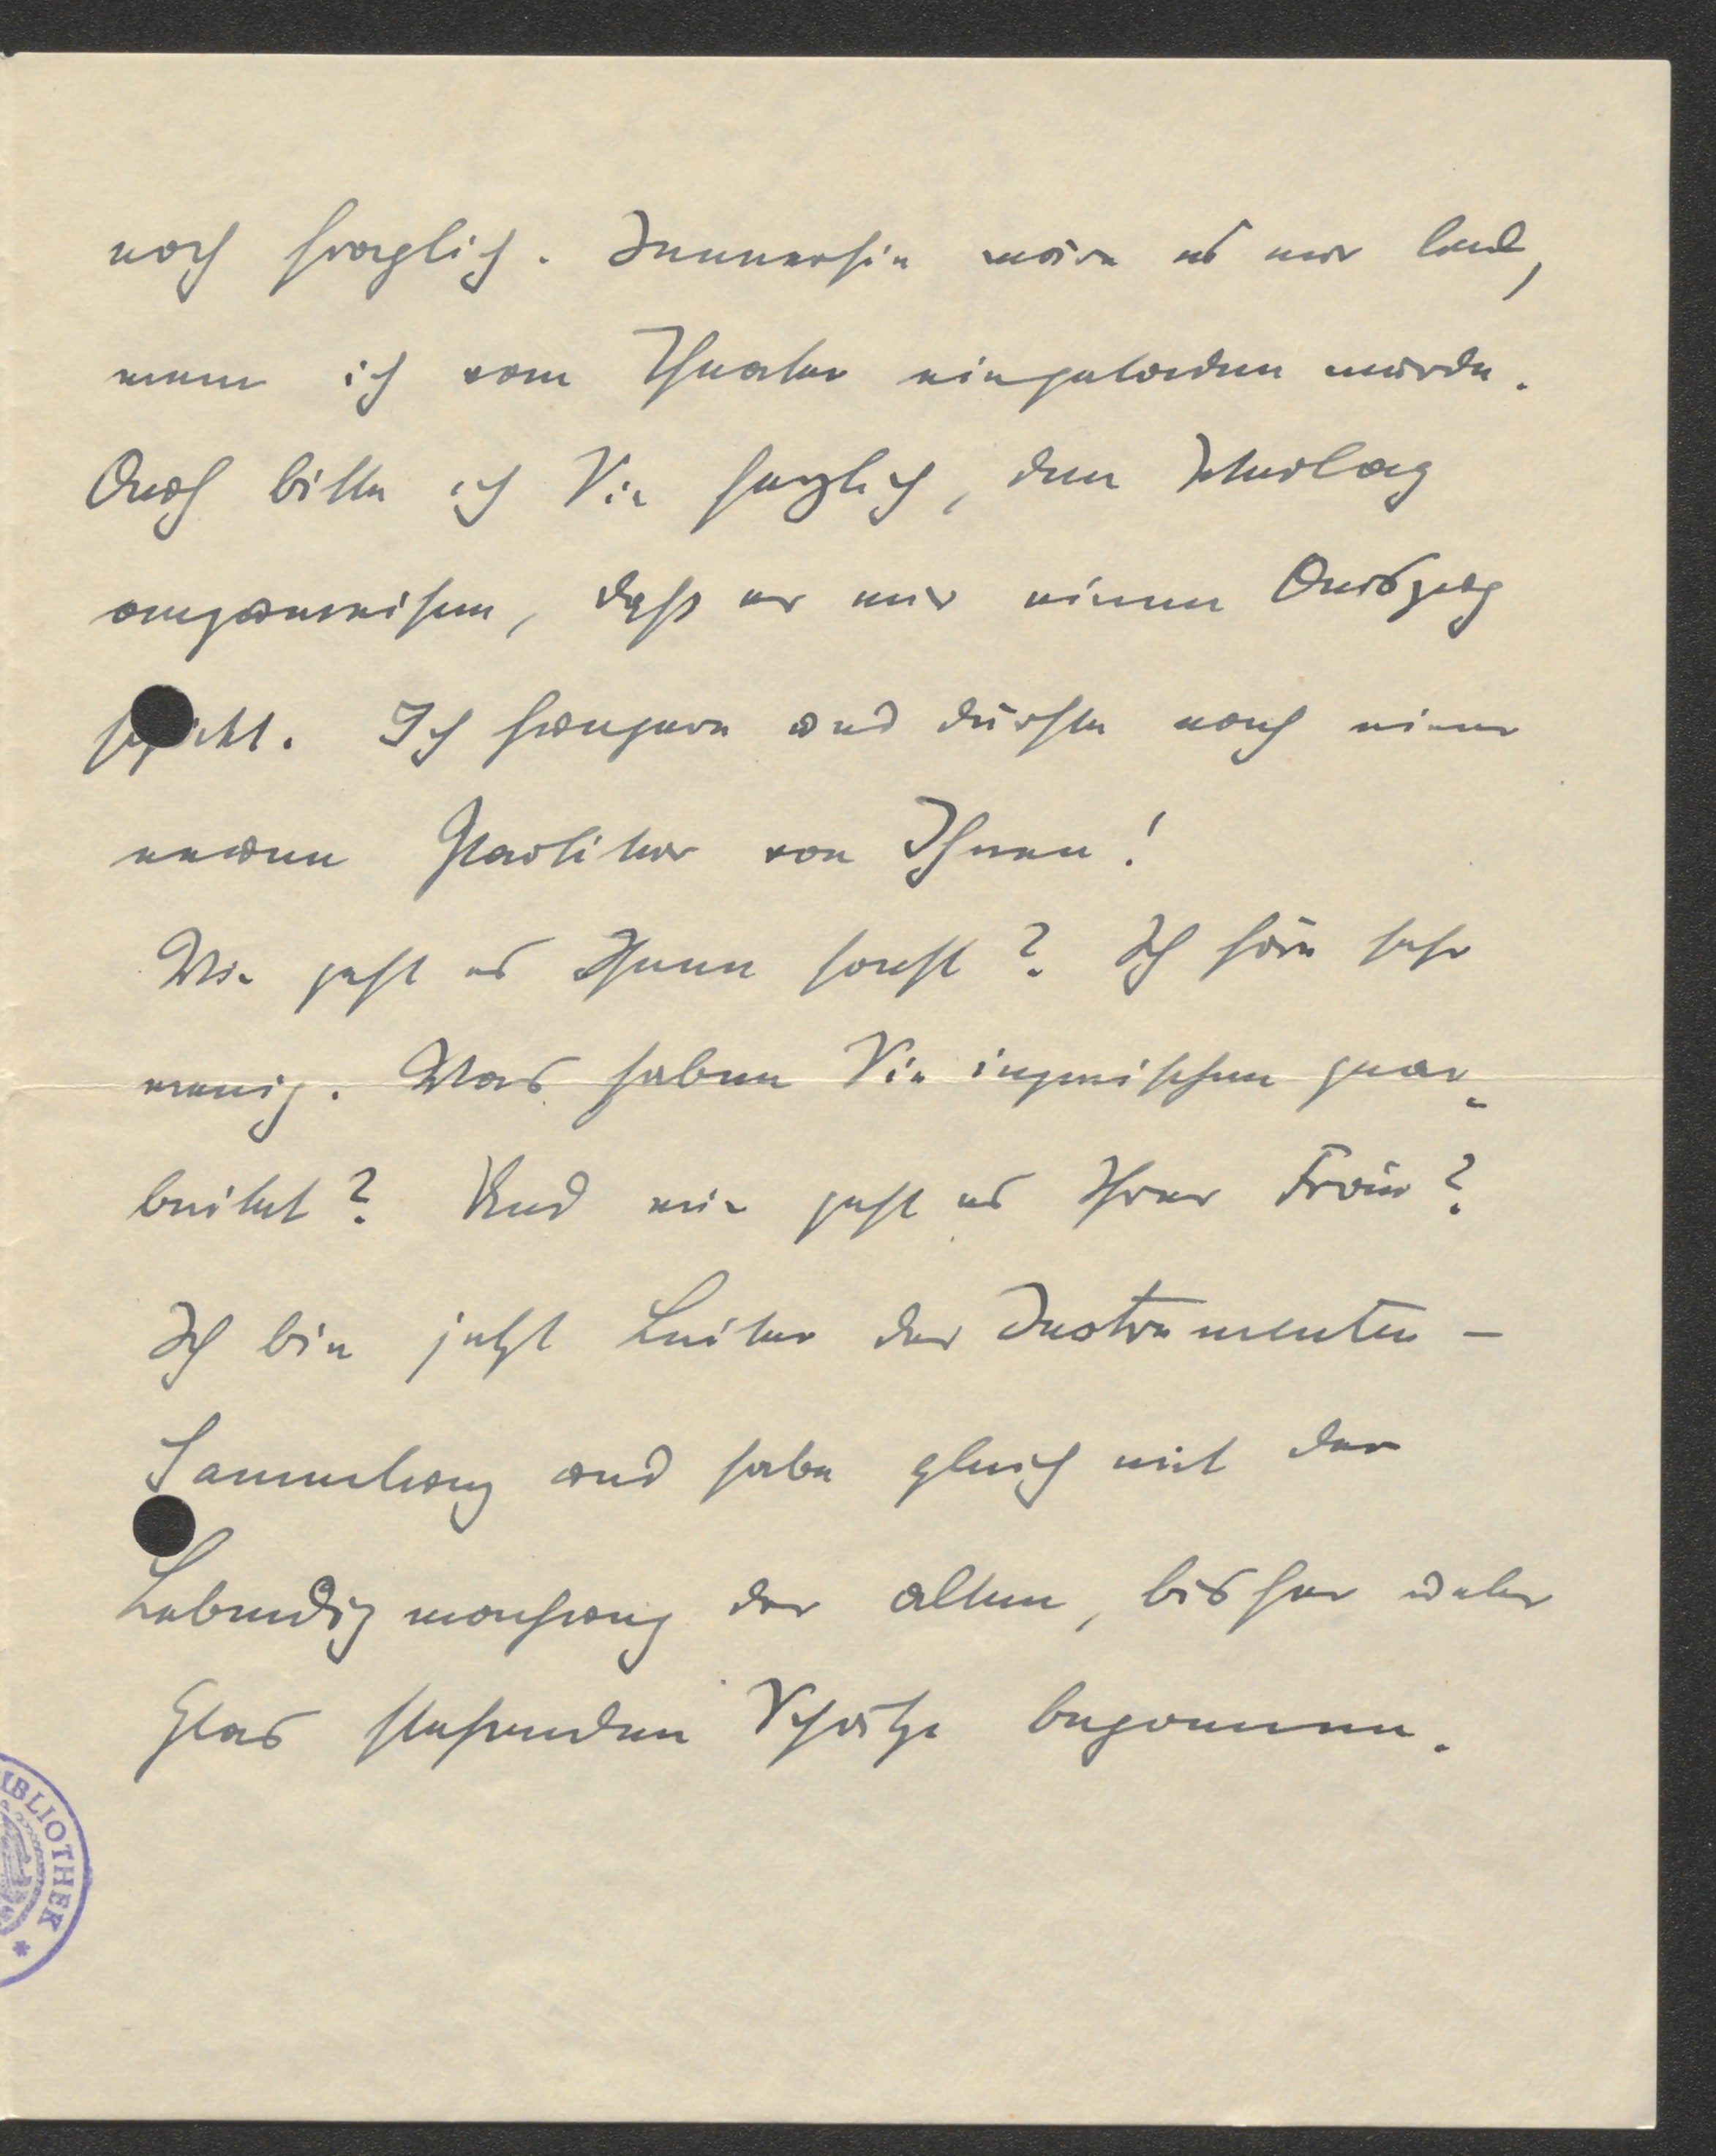 noch fraglich. Immerhin wäre es mir lieb,
wenn ich vom Theater eingeladen würde.
Auch bitte ich Sie herzlich, den Verlag
anzuweisen, daß er mir einen Auszug
schickt. Ich hungere und dürste nach einer
neuen Partitur von Ihnen!
Wie geht es Ihnen sonst? Ich höre sehr
wenig. Was haben Sie inzwischen gear-
beitet? Und wie geht es Ihrer Frau?
Ich bin jetzt Leiter der Instrumenten-
Sammlung und habe gleich mit der
Lebendigmachung der alten, bisher unter
Glas stehenden Schätze begonnen.
BIBLIOTHEK